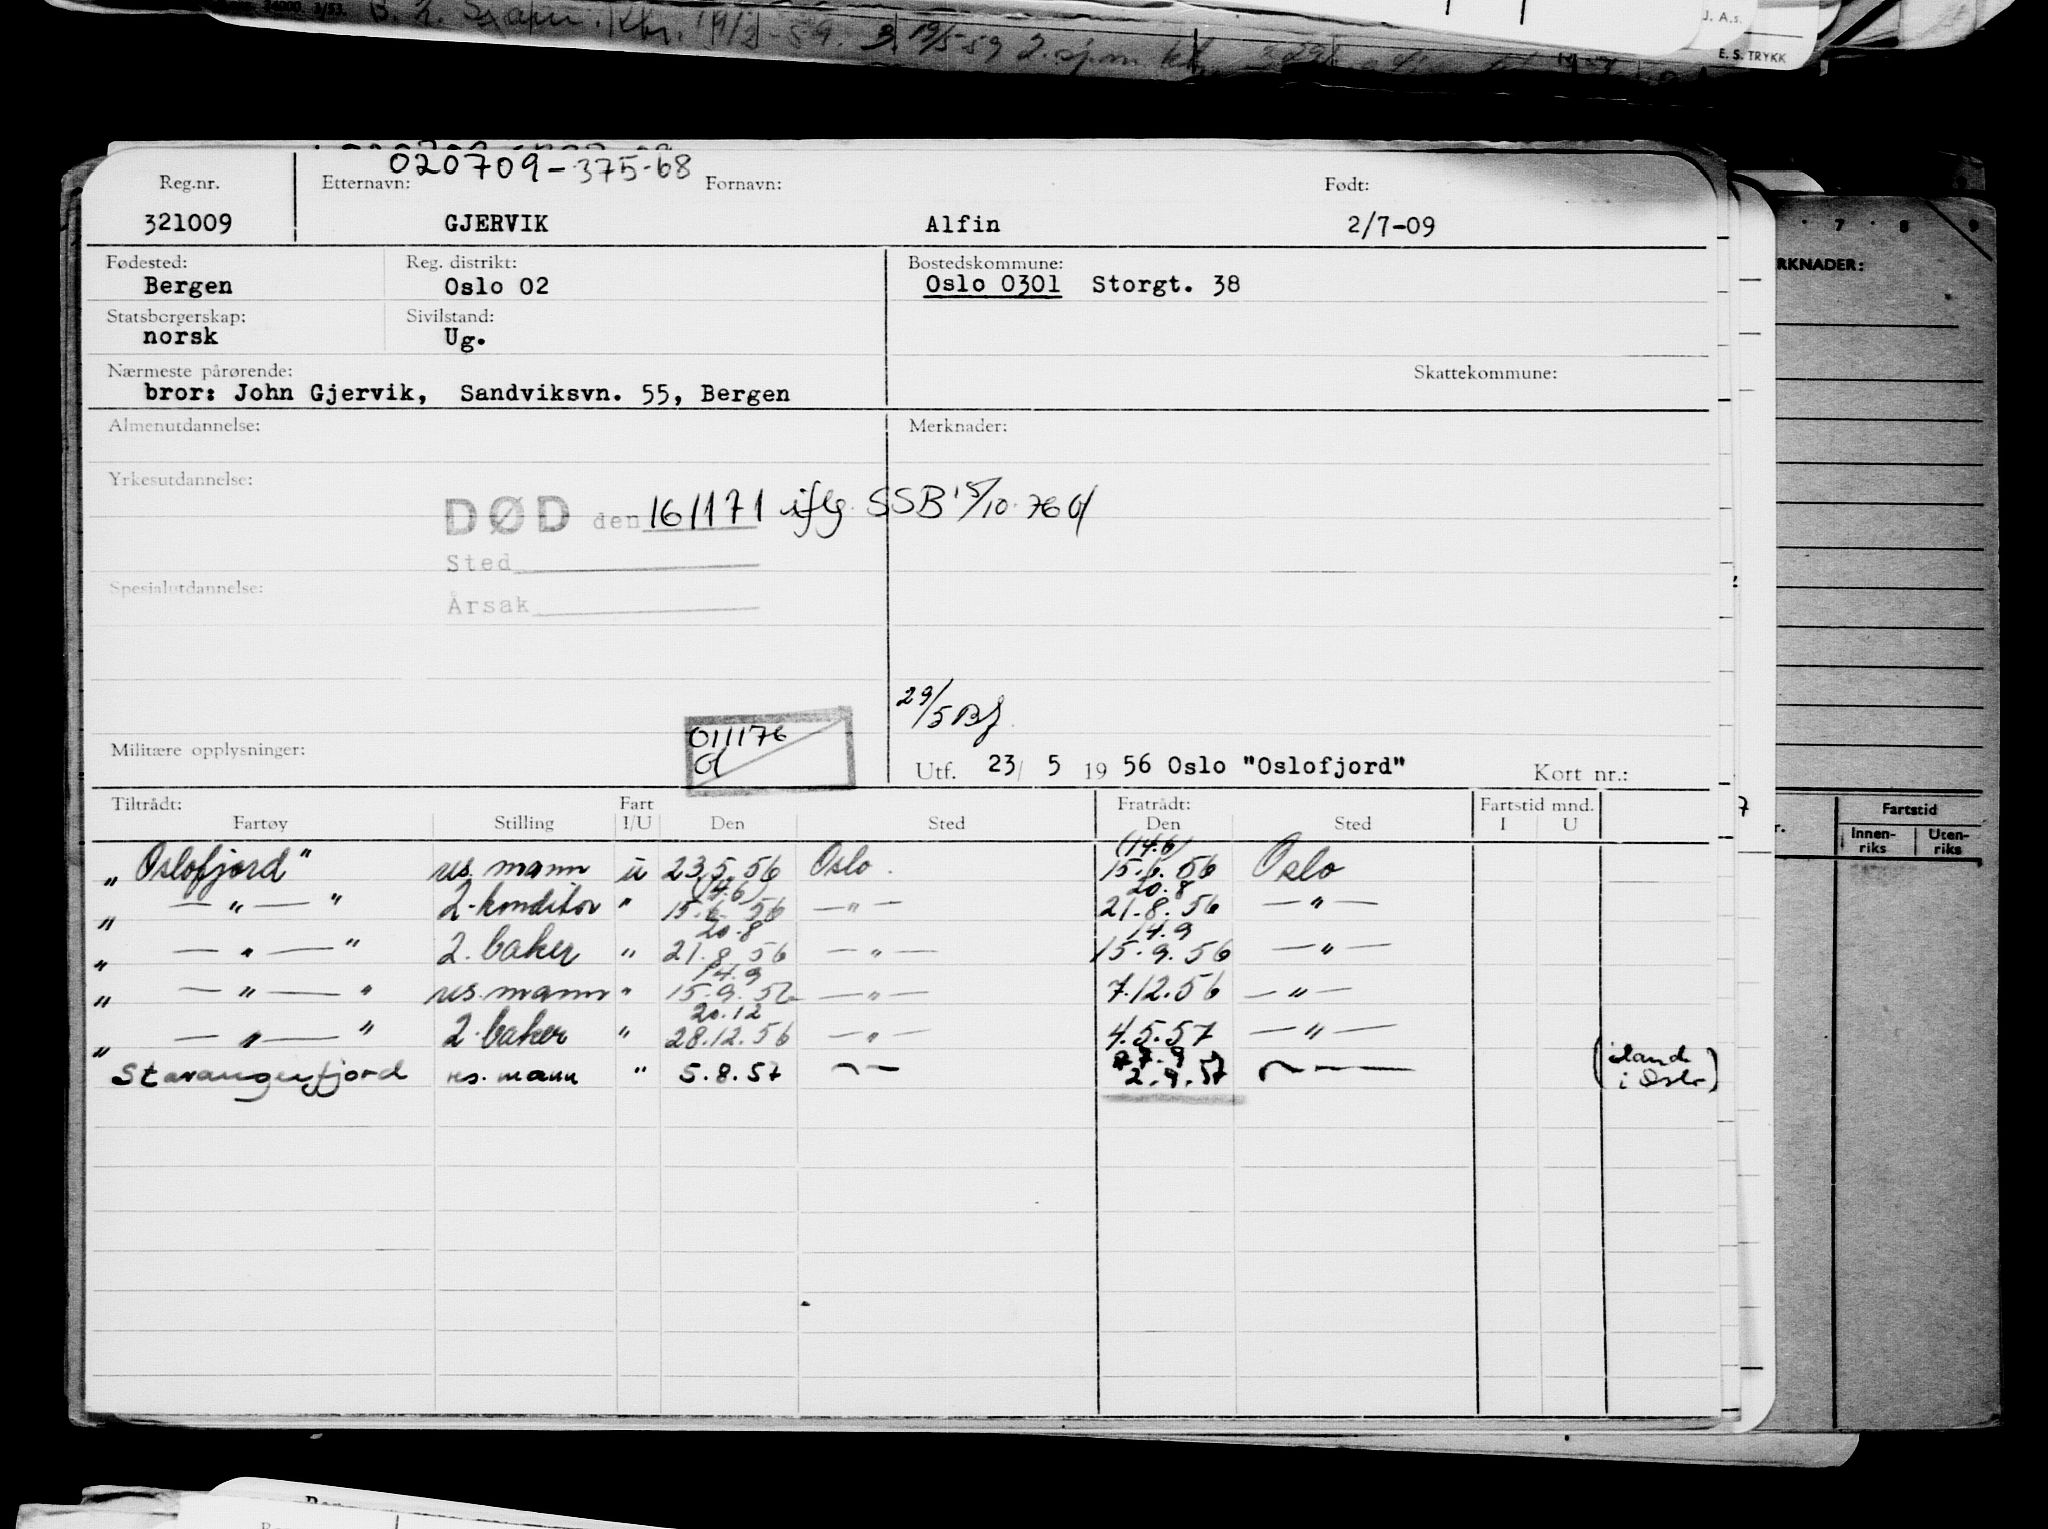 J. A.s.
E. S. TRYKK
020709-375-68
Reg.nr. Etternavn: Fornavn: Født:
321009 GJERVIK Alfin 2/7-09
Fødested: Reg. distrikt: Bostedskommune:
Bergen Oslo 02 Oslo 0301 Storgt. 38
Statsborgerskap: Sivilstand:
norsk Ug.
Nærmeste pårørende: Skattekommune:
bror: John Gjervik, Sandviksvn. 55, Bergen
Almenutdannelse: Merknader:
Yrkesutdannelse:
DØD den 161171 iflg. SSB 15/10.76
Sted
Spesialutdannelse:
Årsak
29/5
011176
Militære opplysninger: Utf. 23/ 5 19 56 Oslo "Oslofjord" Kort nr.:
Tiltrådt: Fart Fratrådt: Fartstid mnd.
Fartøy Stilling I/U Den Sted Den Sted I U
(14.6)
„ Oslofjord" res. mann u 23.5.56 Oslo 15.6.56 Oslo
(14.6) 20.8
„ — " — " 2. konditor " 15.6.56 — " — 21.8.56 — " —
20.8 14.9
„ — " — " 2. baker " 21.8.56 — " — 15.9.56 — " —
14.9
„ — " — " res. mann " 15.9.56 — " — 7.12.56 — " —
20.12
„ — " — " 2. baker " 28.12.56 — " — 4.5.57 — " —
Stavangerfjord res. mann " 5.8.57 — — 2.9.57 — — (iland
i Oslo)
7 8 9
RKNADER:
Fartstid
Innen-
riks
Uten-
riks